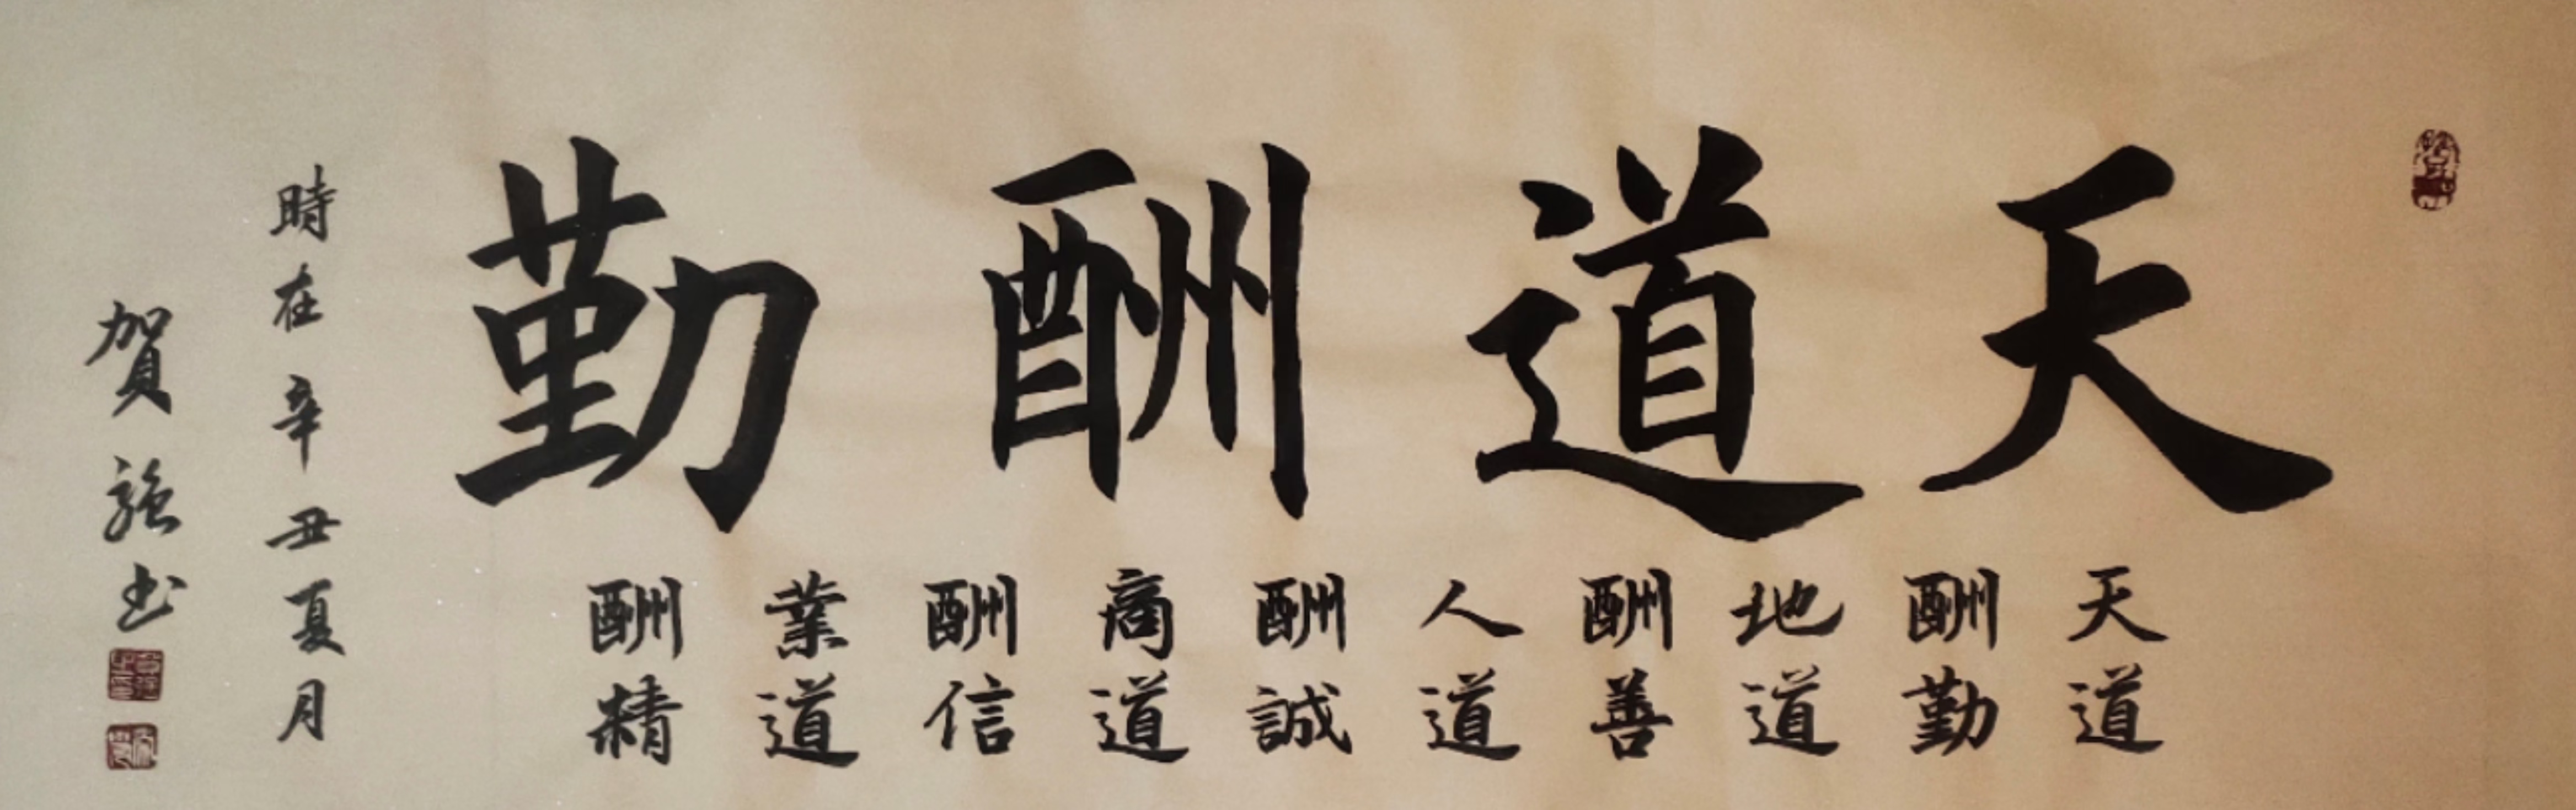 天道酬勤
天道
酬勤
地道
酬善
人道
酬誠
商道
酬信
業道
酬精
時在辛丑夏月
賀強书